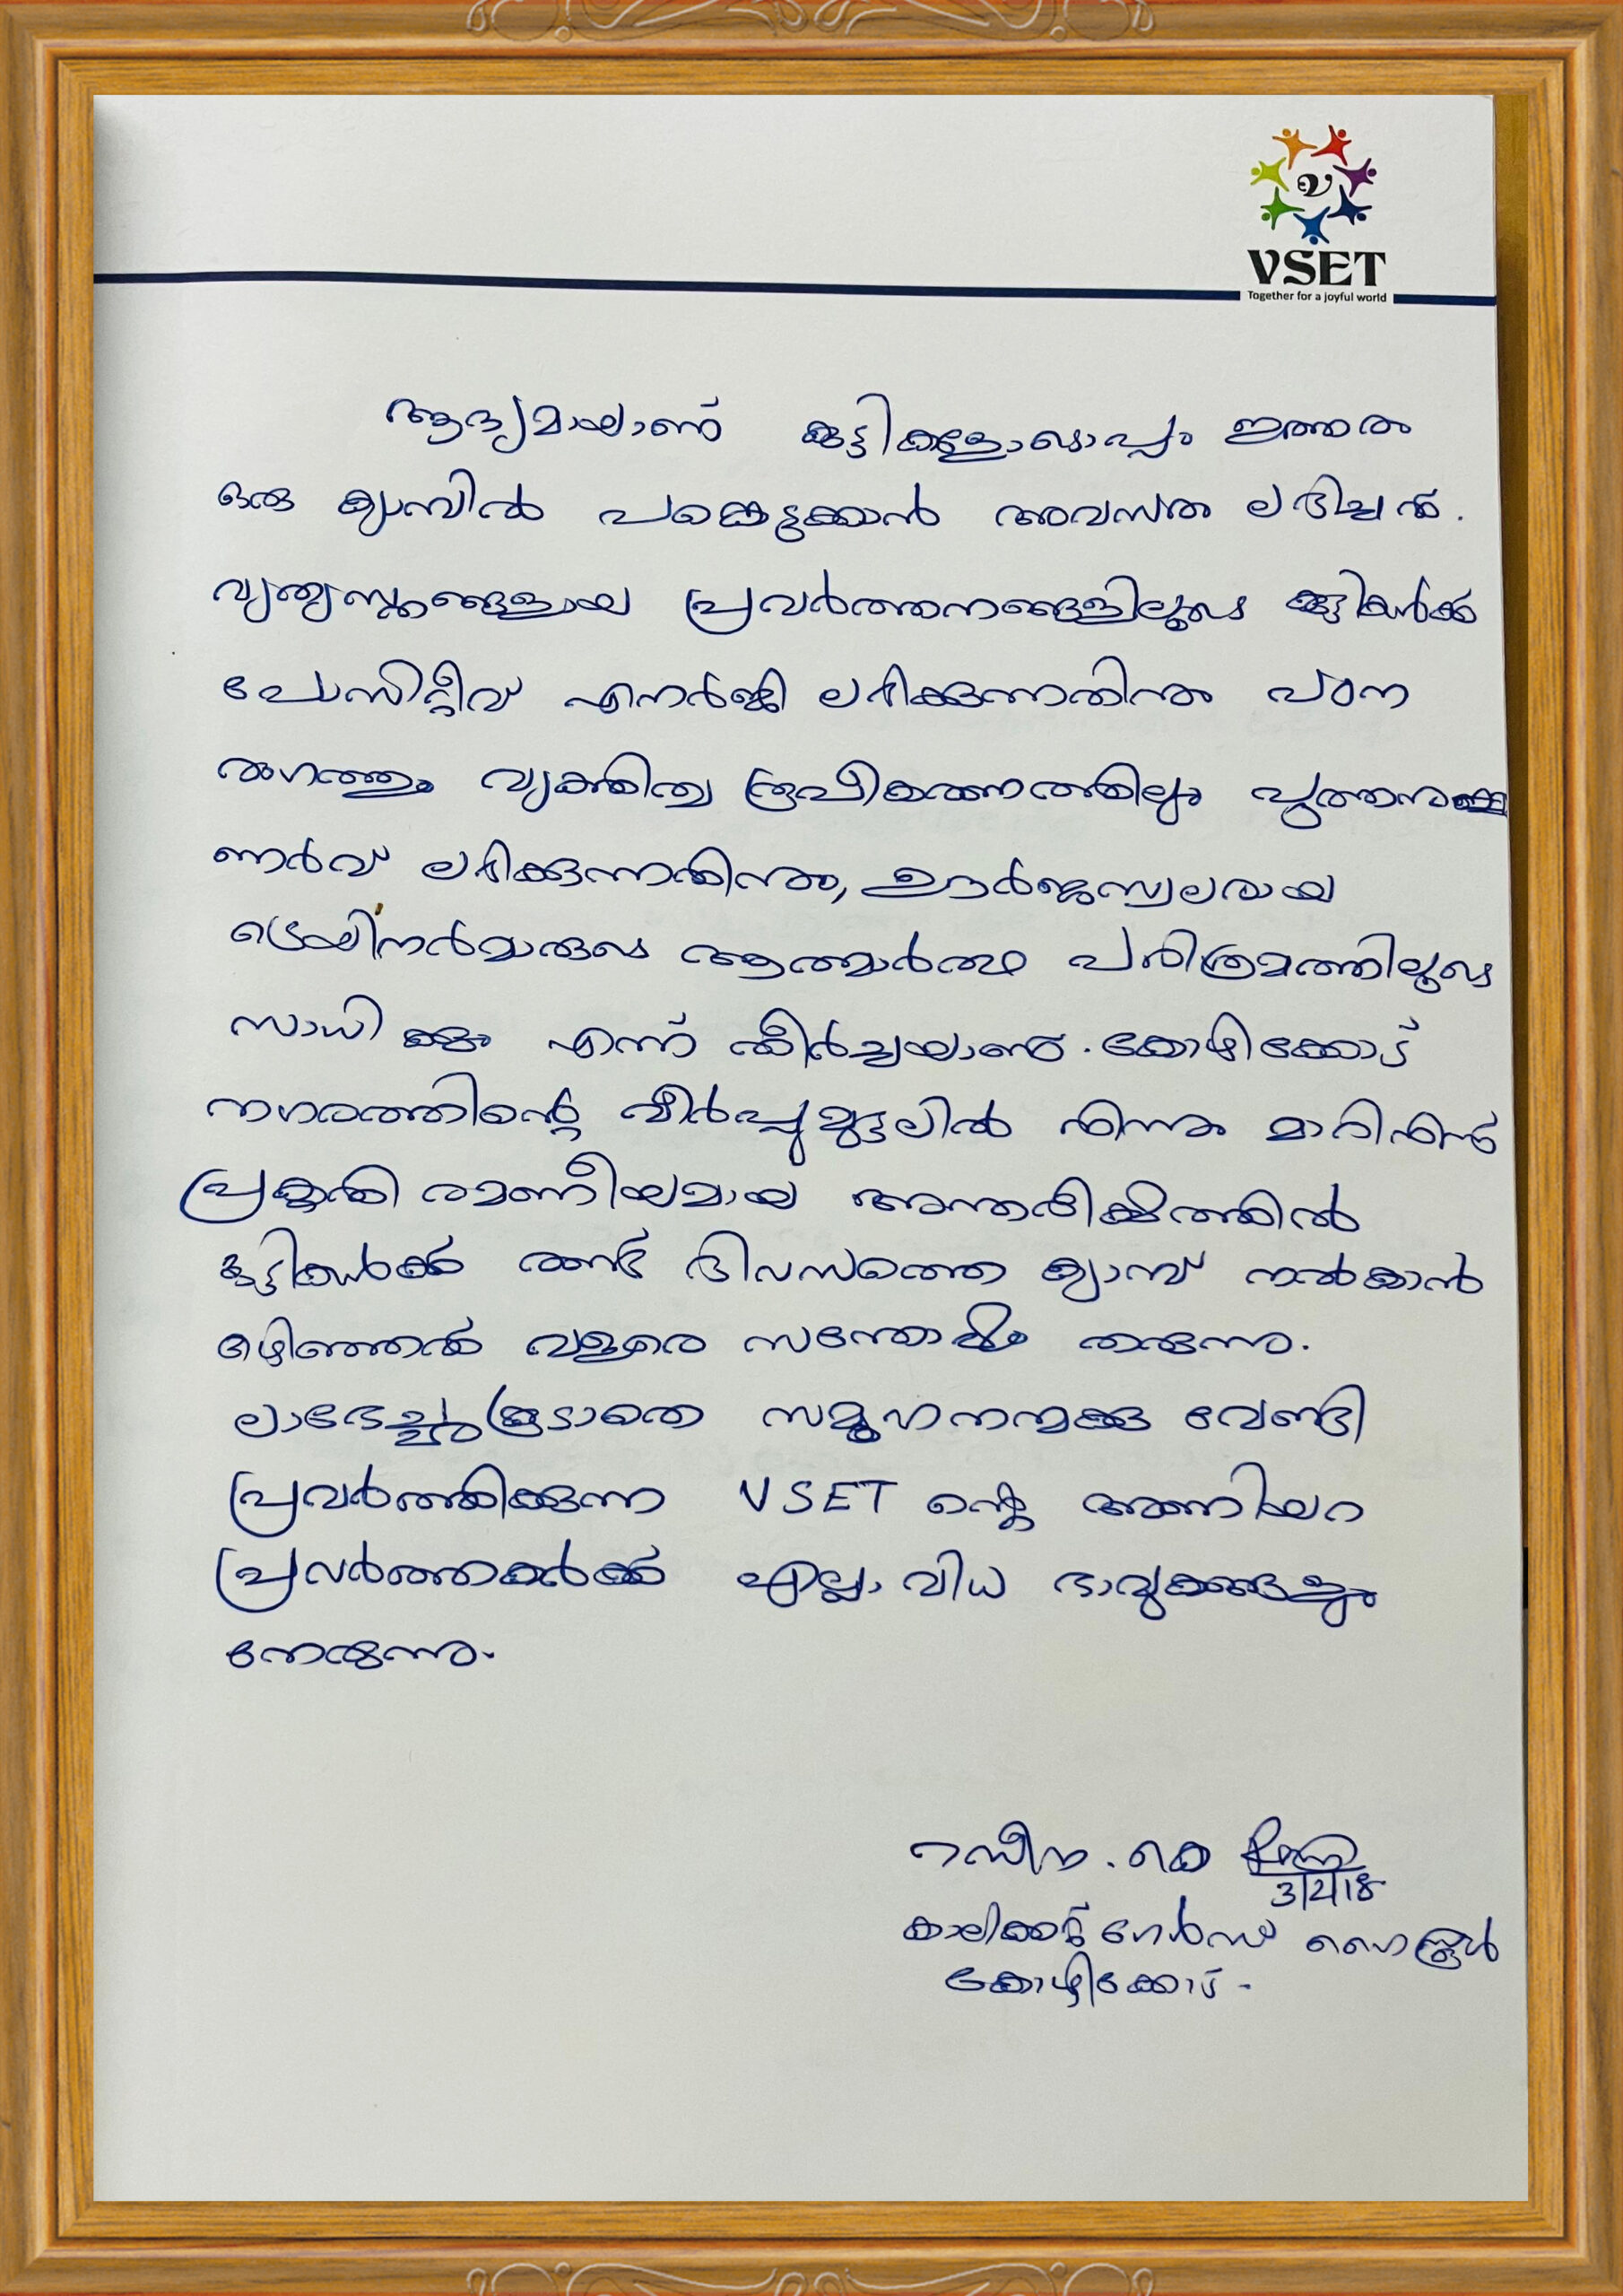 VSET
Together for a joyful world
ആദ്യമായാണ് കുട്ടികളോടൊപ്പം ഇത്തരം
ഒരു ക്യാമ്പിൽ പങ്കെടുക്കാൻ അവസരം ലഭിച്ചത്.
വ്യത്യസ്തങ്ങളായ പ്രവർത്തനങ്ങളിലൂടെ കുട്ടികൾക്ക്
പോസിറ്റീവ് എനർജി ലഭിക്കുന്നതിനും പഠന
രംഗത്തും വ്യക്തിത്വ രൂപീകരണത്തിലും പുത്തനു
ണർവ് ലഭിക്കുന്നതിനും, ഊർജ്ജസ്വലരായ
ട്രെയിനർമാരുടെ ആത്മാർത്ഥ പരിശ്രമത്തിലൂടെ
സാധിക്കും എന്ന് തീർച്ചയാണ്. കോഴിക്കോട്
നഗരത്തിന്റെ വീർപ്പുമുട്ടലിൽ നിന്നും മാറിനിന്ന്
പ്രകൃതി രമണീയമായ അന്തരീക്ഷത്തിൽ
കുട്ടികൾക്ക് രണ്ട് ദിവസത്തെ ക്യാമ്പ് നൽകാൻ
കഴിഞ്ഞതിൽ വളരെ സന്തോഷം തരുന്നു.
ലാഭേച്ഛകൂടാതെ സമൂഹനന്മക്കു വേണ്ടി
പ്രവർത്തിക്കുന്ന VSET ന്റെ അണിയറ
പ്രവർത്തകർക്ക് എല്ലാ വിധ ഭാവുകങ്ങളും
നേരുന്നു.
റസീന. കെ
3/2/18
കാലിക്കറ്റ് ഗേൾസ് ഹൈസ്കൂൾ
കോഴിക്കോട്.